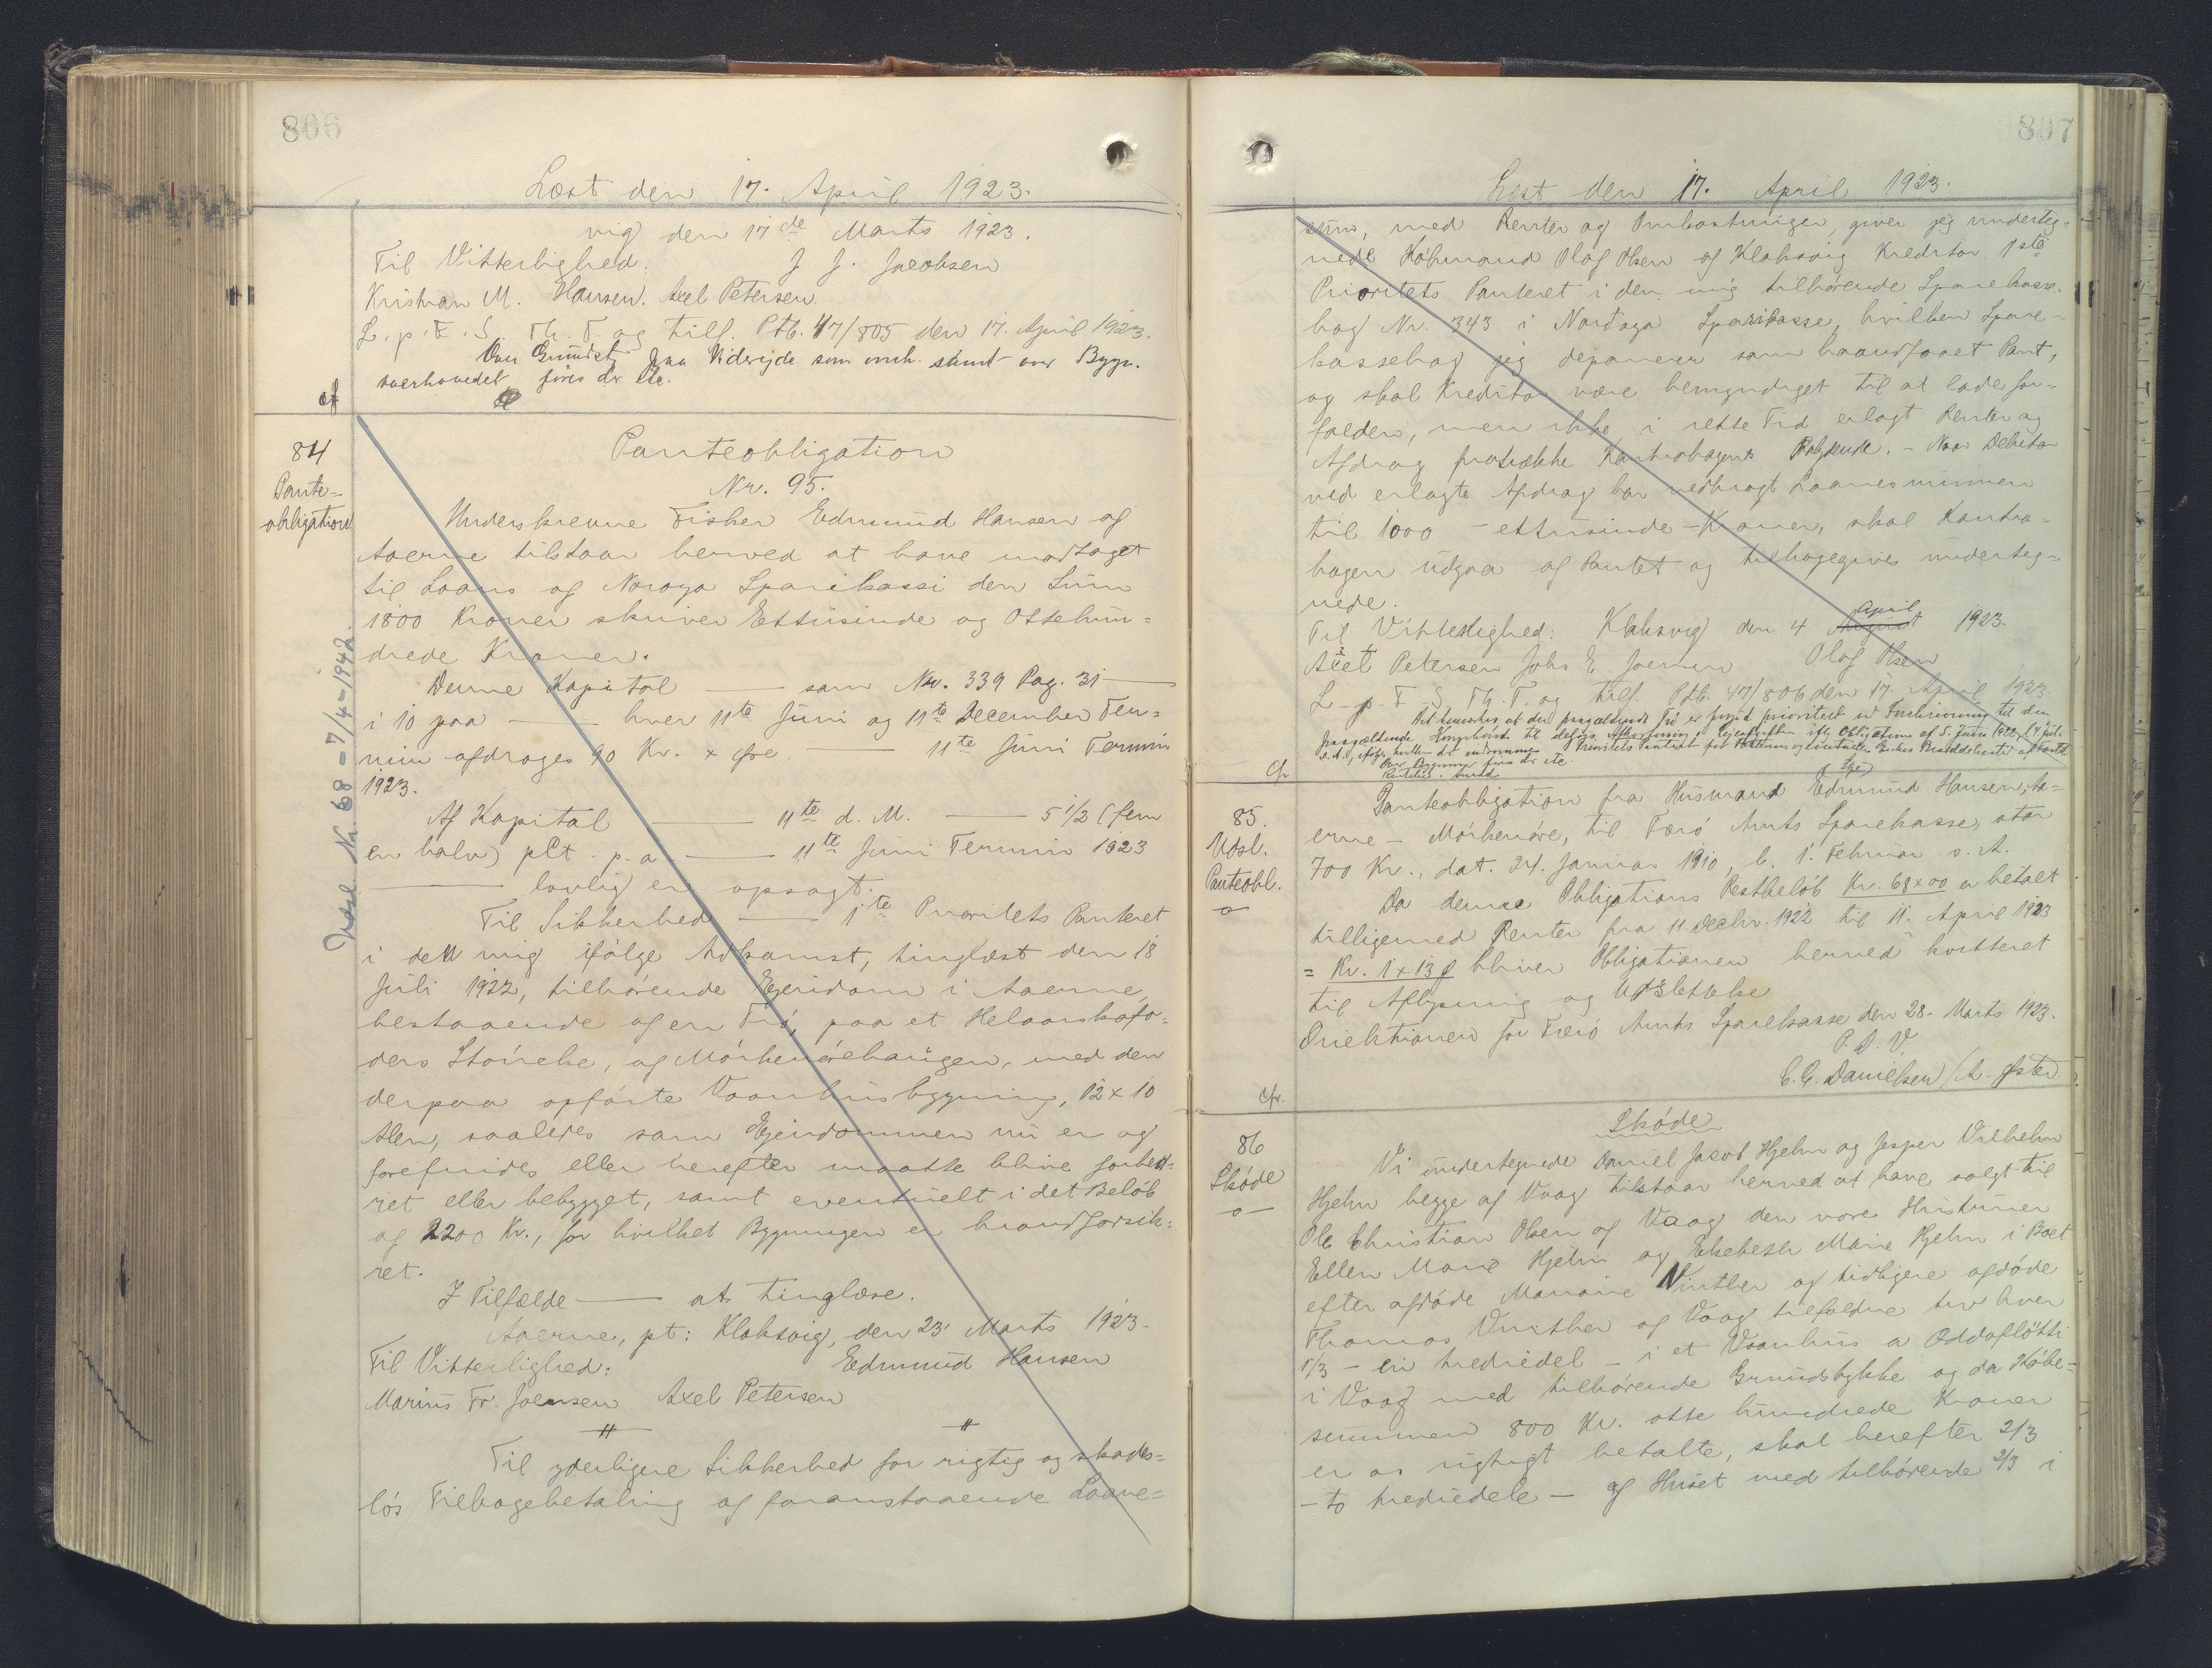 806
Læst den 17. April 1923.
vig den 17de Marts 1923.
Til Vitterlighed: J. J. Jacobsen
Kristian M. Hansen. Axel Petersen
L. p. F. S. Th. T. og tilf. Ptb. 47/805 den 17. April 1923.
Om Grundst. paa Viderejde som omh. samt over Bygn.
overhovedet føres der etc.
cf
84
Pante-
obligation
Panteobligation
Nr. 95.
Underskrevne Fisker Edmund Hansen af
Aaerne tilstaar herved at have modtaget
til Laans af Noroya Sparikassi den Sum
1800 Kroner skriver Ettusinde og Ottehun-
drede Kroner.
Denne Kapital — som Nr. 339 Pag. 31 —
i 10 paa — hver 11te Juni og 11te December Ter-
min afdrages 90 Kr. × Øre — 11te Juni Termin
1923.
Af Kapital — 11te d. M. — 5 1/2 (fem
en halv) pCt. p. a. — 11te Juni Termin 1923
— lovlig er opsagt.
Til Sikkerhed — 1te Prioritets Panteret
i den mig ifølge Adkomst, tinglæst den 18
Juli 1922, tilhørende Ejendom i Aaerne,
bestaaende af en Trø, paa et Helaarskofo-
ders Størrelse, af Mørkenørehaugen, med den
derpaa opførte Vaanhusbygning, 12 × 10
Alen, saaledes som Ejendommen nu er og
forefindes eller herefter maatte blive forbed-
ret eller bebygget, samt eventuelt i det Beløb
af 2200 Kr., for hvilket Bygningen er brandforsik-
ret.
I Tilfælde — at tinglæse.
Aaerne, pt: Klaksvig, den 23' Marts 1923.
Til Vitterlighed: Edmund Hansen
Marius Fr. Joensen Axel Petersen
Til yderligere Sikkerhed for rigtig og skades-
løs Tilbagebetaling af foranstaaende Laane-
Udsl. Nr. 68 – 7/4 – 1942.
807
Læst den 17. April 1923.
sum, med Renter og Omkostninger, giver jeg underteg-
nede Købmand Olaf Olsen af Klaksvig Kreditor 1ste
Prioritets Panteret i den mig tilhørende Sparekasse-
bog Nr. 343 i Nordoya Sparikasse, hvilken Spare-
kassebog jeg deponerer som haandfaaet Pant,
og skal Kreditor være bemyndiget til at lade for-
falden, men ikke i rette Tid erlagt Renter og
Afdrag fratrække Kontrabogens Paalydende. – Naar Debitor
ved erlagte Afdrag har nedbragt Laanesummen
til 1000 – ettusinde – Kroner, skal Kontra-
bogen udgaa af Pantet og tilbagegives underteg-
nede.
Til Vitterlighed: Klaksvig den 4 August April 1923.
Axel Petersen Johs E. Joensen Olaf Olsen
L. p. F. S. Th. T. og tilf. Ptb. 47/806 den 17. April 1923.
Cfr
85.
Udsl.
Panteobl.
Panteobligation fra Husmand Edmund Hansen, Aa-
erne – Mørkenøre, til Færø Amts Sparekasse, stor
700 Kr., dat. 24. Januar 1910, l. 1. Februar s. A.
Da denne Obligations Restbeløb Kr. 68×00 er betalt
tilligemed Renter fra 11 Decbr. 1922 til 11. April 1923
= Kr. 1×13 Ø bliver Obligationen herved kvitteret
til Aflysning og Udslettelse
Direktionen for Færø Amts Sparekasse den 28. Marts 1923.
P. D. V.
C. G. Danielsen / A. Øster.
Cfr.
86
Skøde
Skøde
Vi undertegnede Daniel Jacob Hjelm og Jesper Vilhelm
Hjelm begge af Vaag tilstaar herved at have solgt til
Ole Christian Olsen af Vaag den vore Hustruer
Ellen Marie Hjelm og Elsebeth Marie Hjelm i Boet
efter afdøde Manarie Vinther og tidligere afdøde
Thomas Vinther af Vaag tilfaldne tu hver
1/3 – en trediedel – i et Vaanhus a Oddafløtti
i Vaag med tilhørende Grundstykke og da Købe-
summen 800 Kr. otte hundrede Kroner
er os rigtigt betalte, skal herefter 2/3
– to trediedele – af Huset med tilhørende 2/3 i